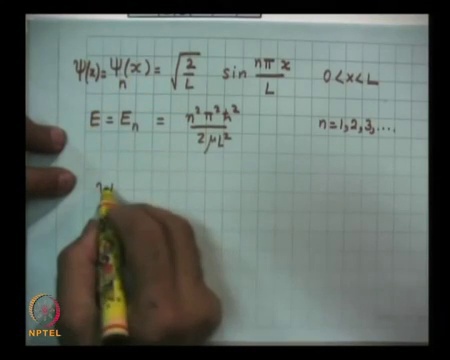 ψ(x) = ψₙ(x) = √(2/L) sin nπx/L 0<x<L
E = Eₙ = n²π²ħ²/2μL² n=1,2,3,....
NPTEL